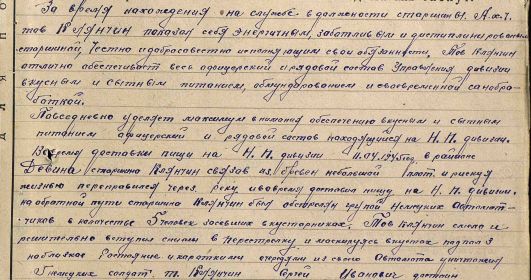 За время нахождения на службе в должности старшины А.х.ч.
тов Клянчин показал себя энергичным, заботливым и дисциплинированным
старшиной, честно и добросовестно исполняющим свои обязанности, Тов Клянчин
отлично обеспечивает весь офицерский и рядовой состав Управления дивизии
вкусным и сытным питанием, обмундированием и своевременной санобра-
боткой.
Повседневно уделяет максимум внимания обеспечению вкусным и сытным
питанием офицерский и рядовой состав находящийся на Н.П. дивизии.
Во время доставки пищи на Н.П. дивизии 11.04.1945 год, в районе
Девина старшина Клянчин связав из бревен небольшой плот и рискуя
жизнью переправился через реку и вовремя доставил пищу на Н.П. дивизии.
на обратной пути старшина Клянчин был обстрелян группой Немецких Автомат-
чиков в количестве 5 человек засевших в кустарниках, Тов Клянчин смело и
решительно вступил с ними в перестрелку и маскируясь в кустах подполз
на близкое Растояние и короткими очередями из своего Автомата уничтожил
немецких солдат. т. Клянчин Сергей Иванович достоин